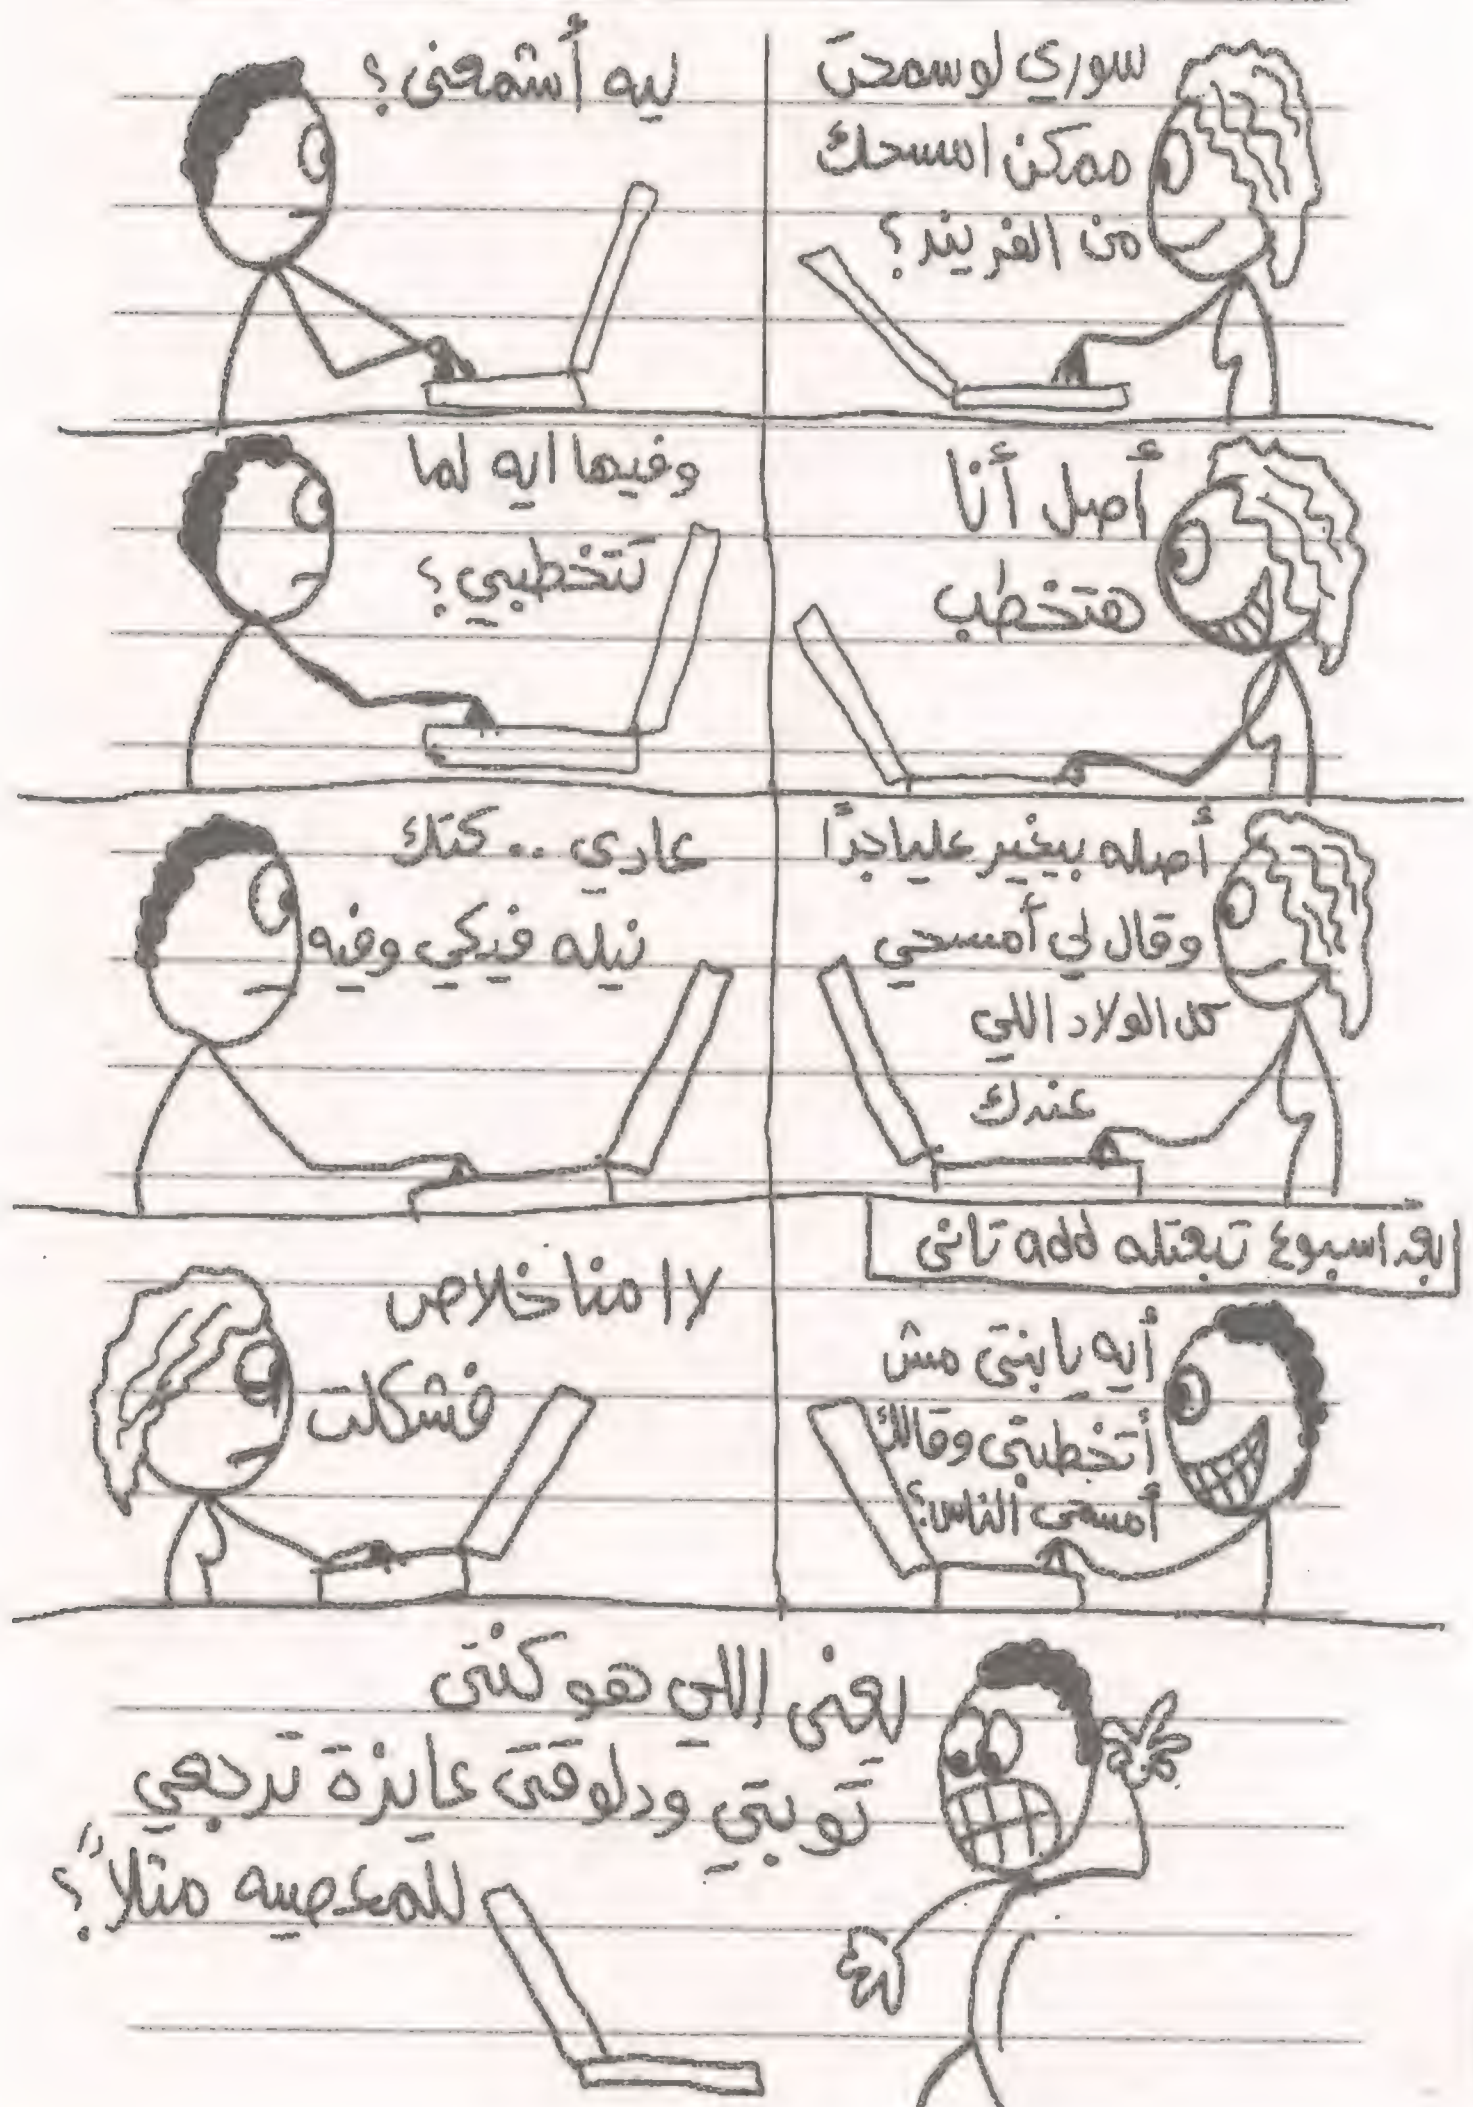 سوري لو سمحت
ممكن امسحك
من الفريند؟
ليه أشمعنى؟
أصل أنا
هتخطب
وفيها ايه لما
تتخطبي؟
أصله بيغير عليا جدًا
وقال لي أمسحي
كل الولاد اللي
عندك
عادي .. كتك
نيله فيكي وفيه
بعد اسبوع تبعتله add تاني
أيه يا بنتي مش
أتخطبتي وقالك
أمسحي الناس؟
لا امنا خلاص
فشكلت
يعني اللي هو كنتي
توبتي ودلوقتى عايزة ترجعي
للمعصيه مثلاً؟